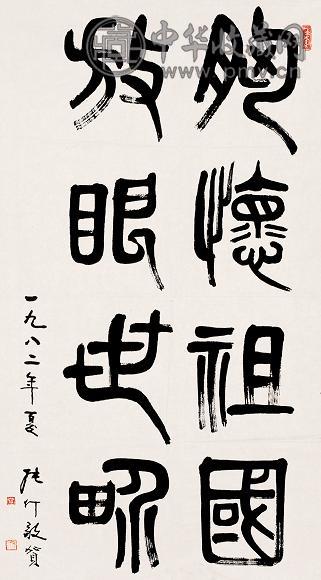 中华收藏网
www.pmv.cn
胸懷祖國
放眼世界
一九八二年夏